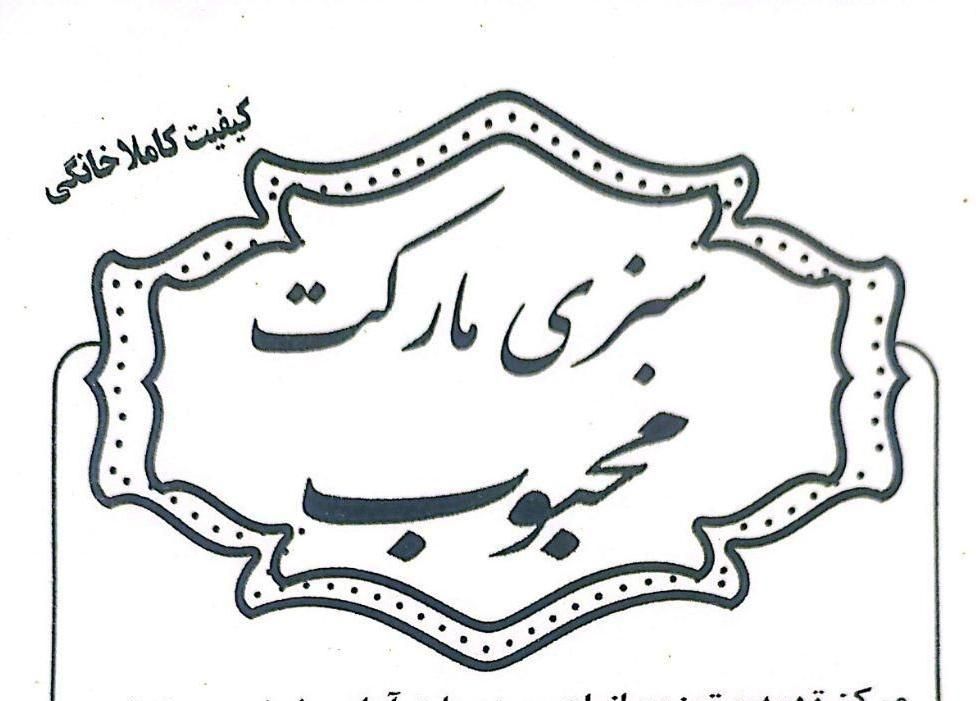 کیفیت کاملا خانگی
سبزی مارکت
محبوب